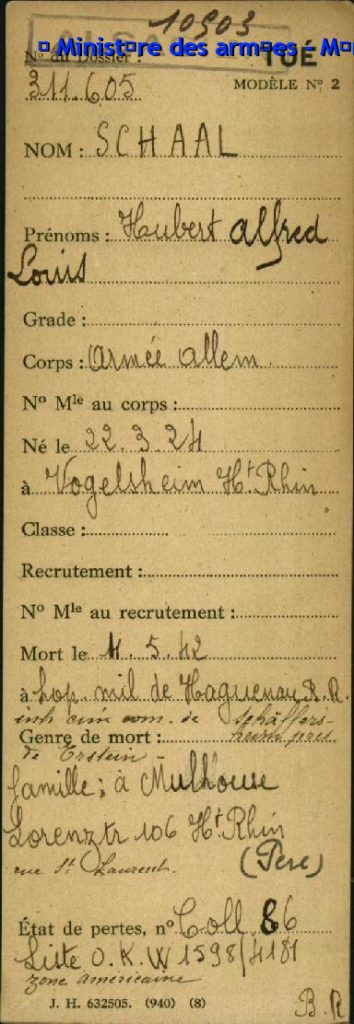 10903
ALSA
¤ Minist¤re des arm¤es - M¤
N° du Dossier : TUÉ
311.605 MODÈLE N° 2
NOM : SCHAAL
Prénoms : Hubert Alfred
Louis
Grade :
Corps : Armée allem
N° Mle au corps :
Né le 22.3.24
à Vogelsheim Ht Rhin
Classe :
Recrutement :
N° Mle au recrutement :
Mort le 4.5.42
à hop. mil de Haguenau, B.R.
inh cim com. de Schäffers-
Genre de mort : heim près
de Erstein -
famille : à Mulhouse
Lorenztr 106 Ht Rhin
rue St Laurent. (Père)
État de pertes, n° Coll 86
Liste O.K.W 1598/4181
zone américaine
J. H. 632505. (940) (8) B. R